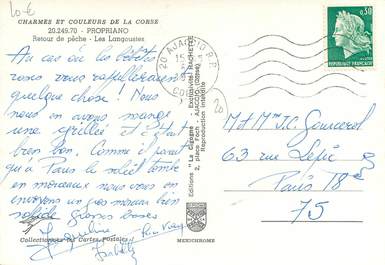 10 €
CHARMES ET COULEURS DE LA CORSE
20.249.70 - PROPRIANO
Retour de pêche - Les Langoustes
Au cas où les bébêtes
vous rappelleraient
quelque chose ! Nous
nous en avons mangé
une grillée et c'était
bien bon. Comme il paraît
qu'à Paris le soleil tombe
en morceaux nous vous en
envoyons un gros morceau bien
gros bises
Jacqueline
Collection Cartes Postales
Editions "La Cigogne" - Exclusivité HACHETTE
2, place Foch - AJACCIO (CORSE)
Reproduction interdite
MEXICHROME
20 AJACCIO R.P.
CORSE
0,30
REPUBLIQUE FRANÇAISE
20
M et Mme J.C.
63 rue Lepic
Paris 18e
75